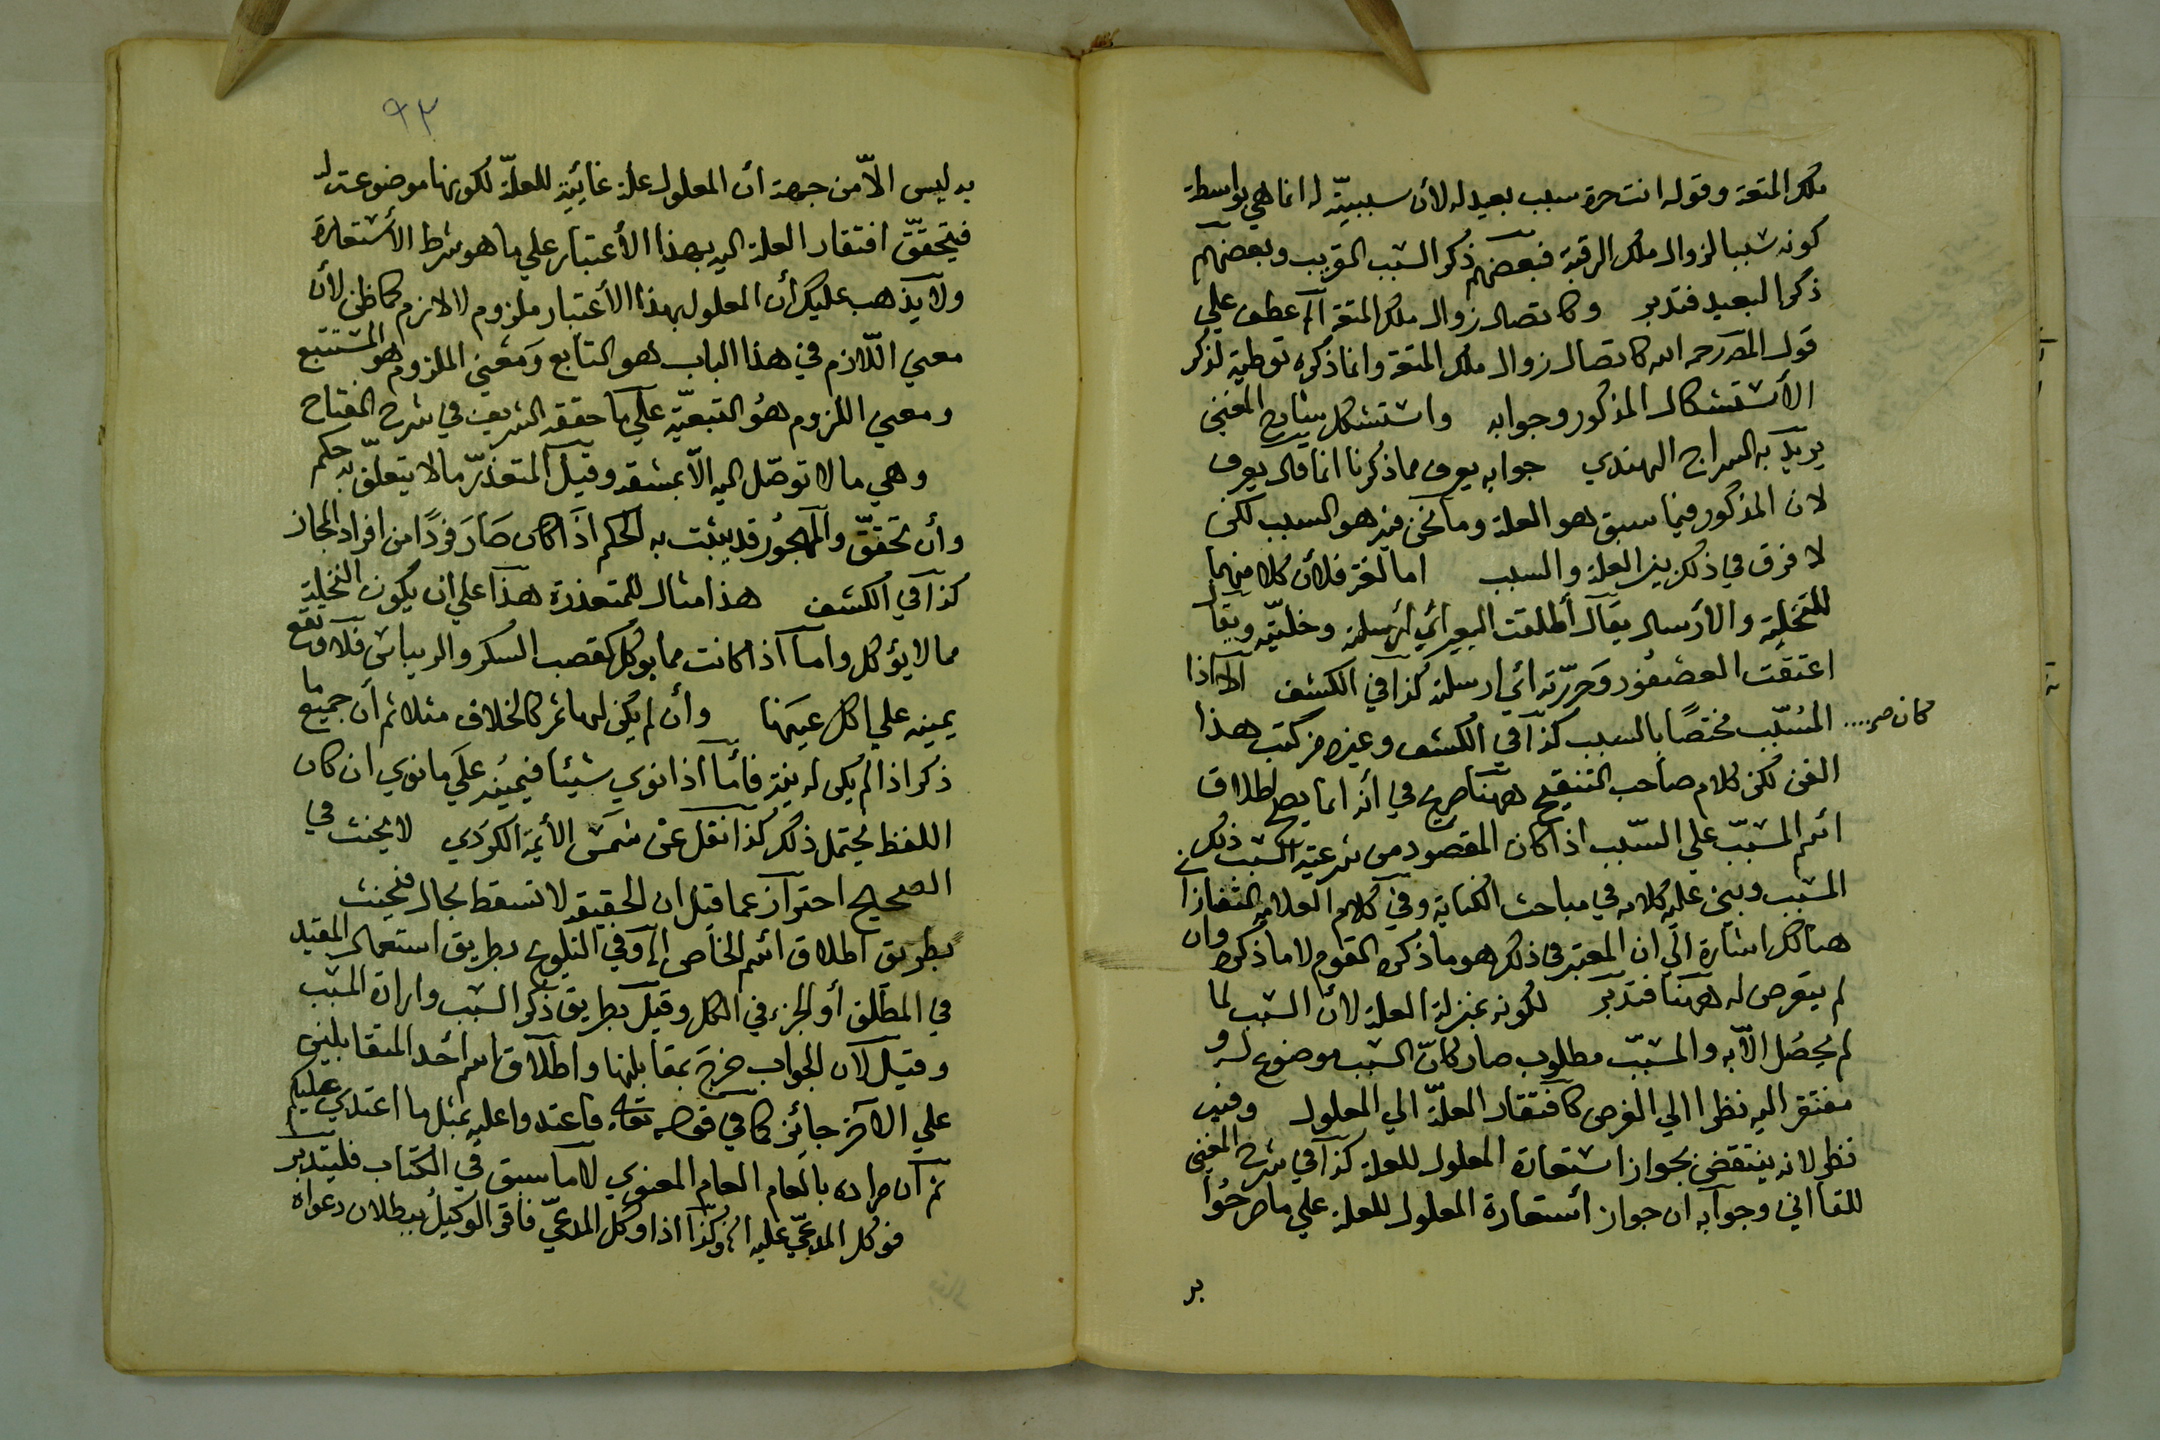 ملك المتعة وقوله انت حرة سبب بعيد له لأن سببيّته له انما هي بواسطة
كونه سببا لزوال ملك الرقبة فبعضهم ذكر السبب القريب وبعضهم
ذكر البعيد فتدبر وكاتصال زوال ملك المتعة الخ عطف علي
قول المصـ رحمه الله كاتصال زوال ملك المتعة وانما ذكره توطية لذكر
الأستشكال المذكور وجوابه واستشكل شارح المغني
يريد به السراج الهندي جوابه يعرف مما ذكرنا انما قال يعرف
لان المذكور فيما سبق هو العلة وما نحن فيه هو السبب لكن
لا فرق في ذلك بين العلة والسبب اما لغة فلأن كلا منهما
للتخلية والأرسال يقال أطلقت البعير أي أرسلته وخليّته ويقال
اعتقت العصفور وحرّرته أي ارسلته كذا في الكشف الا اذا
كان صح
المسبّب مختصًا بالسبب كذا في الكشف وغيره من كتب هذا
الفن لكن كلام صاحب التنقيح ههنا صريح في أنه انما يصح اطلاق
اسم المسبّب علي السّبب اذا كان المقصود من شرعية السبب ذلك
المسبب وبني عليه كلامه في مباحث الكناية وفي كلام العلامة التفتازا ني
هنالك اشارة الي ان المعتبر في ذلك هو ما ذكره القوم لا ما ذكره وان
لم يتعرض له ههنا فتدبر لكونه بمنزلة العلة لان السبب لما
لم يحصل الّا به والمسبّب مطلوب صار كانّ السبب موضوع له و
مفتقر اليه نظرا الي الغرض كافتقار العلّة الي المعلول وفيه
نظر لانه ينتقض بجواز استعارة المعلول للعلة كذا في شرح المغني
للقاآني وجوابه ان جواز أستعارة المعلول للعلة علي ما صرحوا
بر
٩٣
به ليس الاّ من جهة ان المعلول علة غائية للعلّة لكونها موضوعة له
فيتحقّق افتقار العلة اليه بهذا الأعتبار علي ما هو شرط الأستعارة
ولا يذهب عليك أن المعلول بهذا الأعتبار ملزوم لا لازم كما ظن لأن
معني اللّازم في هذا الباب هو التابع ومعني الملزوم هو المستتبع
ومعني اللزوم هو التبعيّة علي ما حققه الشريف في شرح المفتاح
وهي ما لا توصّل اليه الّا بمشقة وقيل المتعذّر ما لا يتعلّق به حكم
وأن تحقّق والمهجور قد يثبت به الحكم اذا كان صَارَ فردًا من افراد المجاز
كذا في الكشف هذا مثال للمتعذرة هذا علي ان يكون النخلة
مما لا يؤكل واما اذا كانت مما يوكل كقصب السكر والريباس فلا وتقع
يمينه علي اكل عينها وأن لم يكن لها ثمر كالخلاف مثلا ثم أن جميع ما
ذكر اذا لم يكن له نية فأما اذا نوي شيئا فيمينه علي ما نوي ان كان
اللفظ يحتمل ذلك كذا نقل عن شمس الأيمة الكردي لا يحنث في
الصحيح احتراز عما قيل ان الحقيقة لا تسقط بحال فيحنث
بطريق اطلاق اسم الخاص الخ وفي التلويح بطريق استعمال المقيد
في المطلق أو الجزء في الكل وقيل بطريق ذكر السبب وارادة المسبب
وقيل لان الجواب خرج بمقابلتها واطلاق اسم أحد المتقابلين
علي الآخر جائز كما في قوله تعالي فاعتدوا عليه بمثل ما اعتدي عليكم
ثم ان مراده بالعام العام المعنوي لا ما سبق في الكتاب فليتدبر
فوكل المدعي عليه الخ وكذا اذا وكل المدعيّ فاقر الوكيل ببطلان دعواه